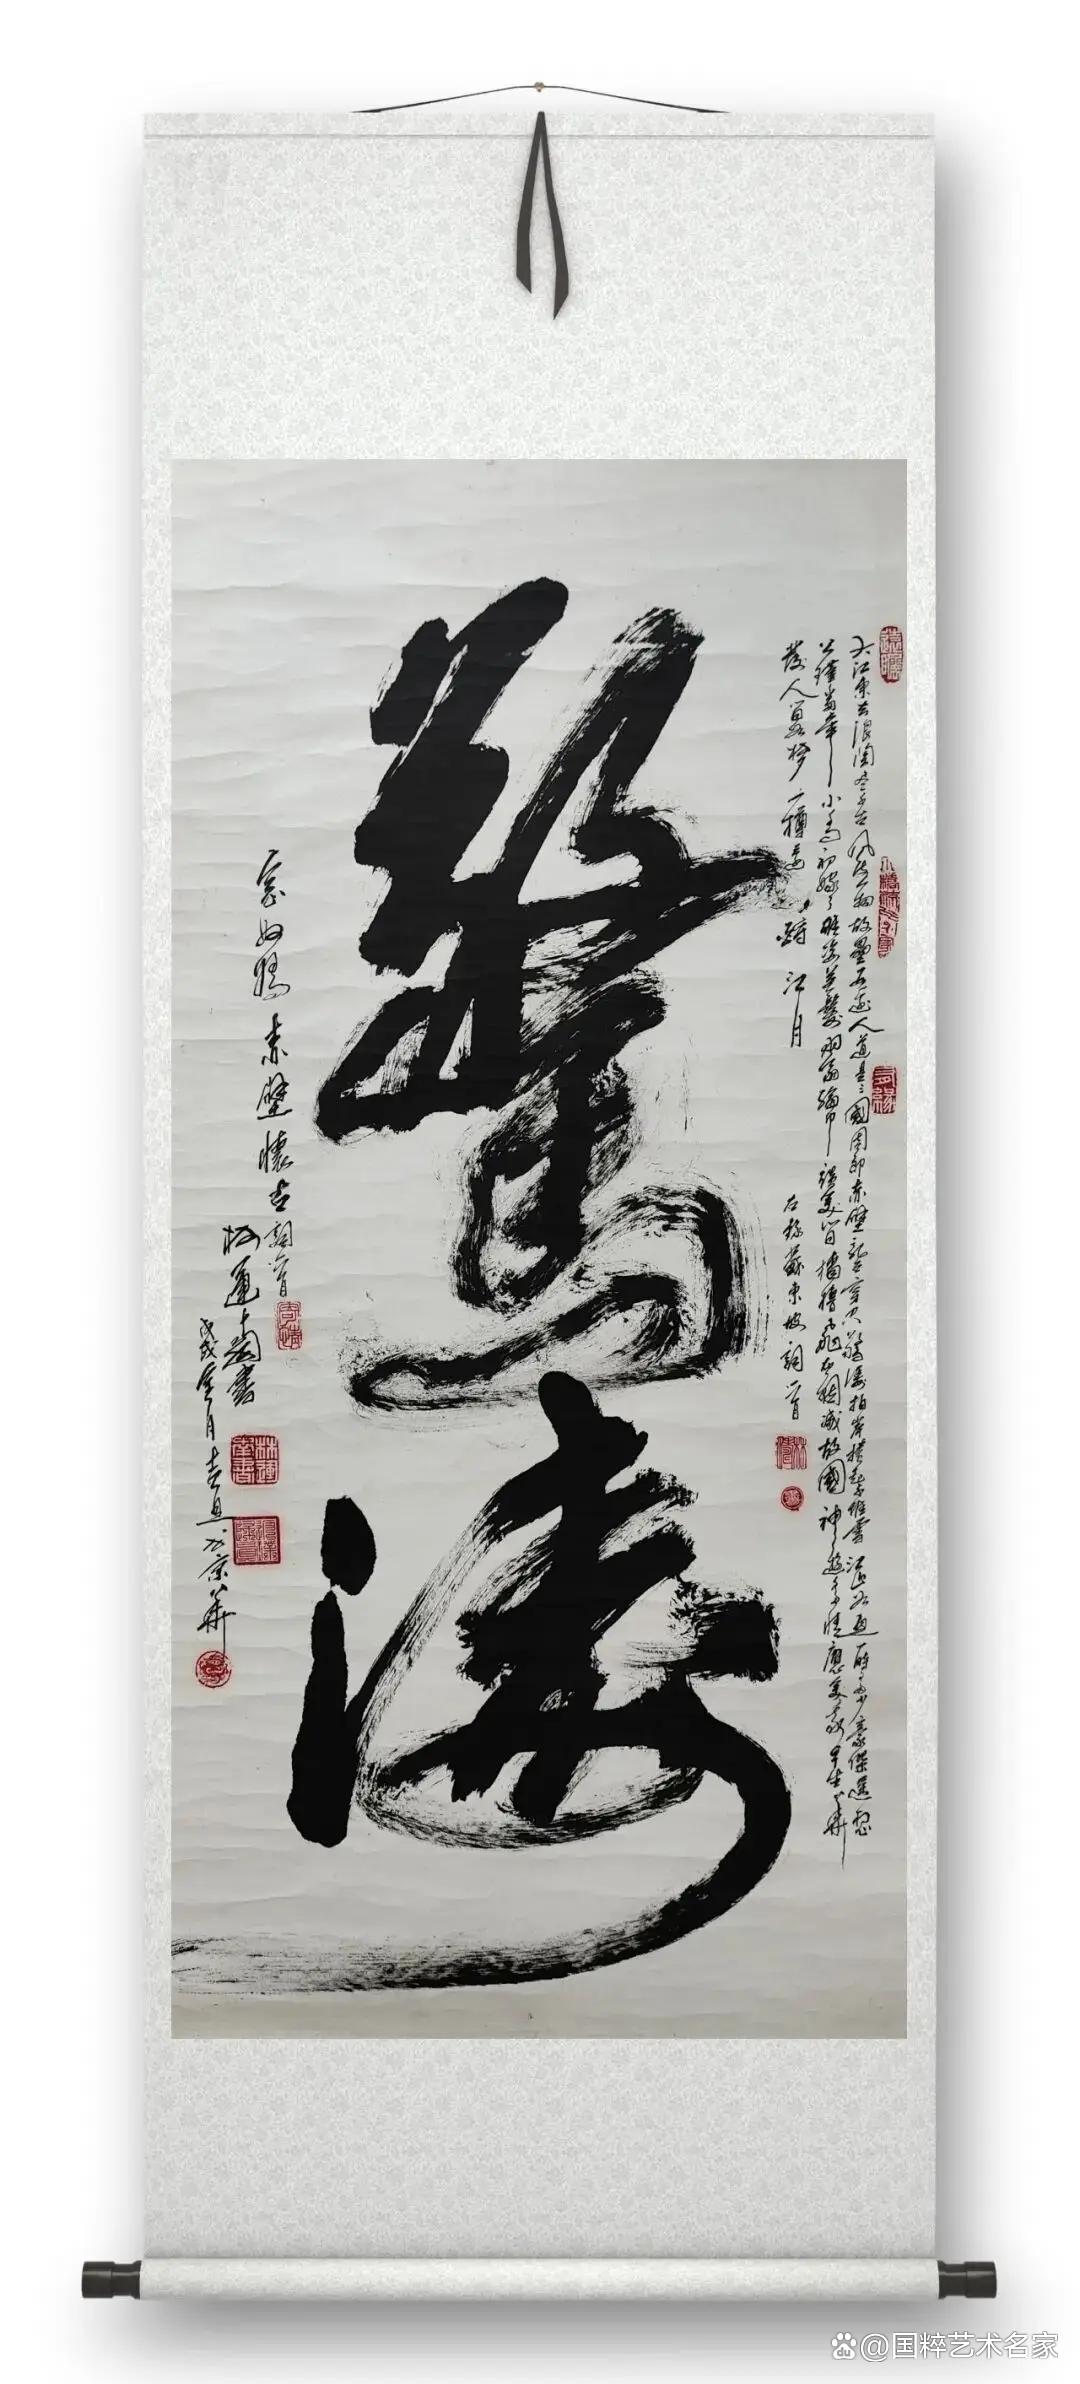 大江東去浪淘盡千古風流人物故壘西邊人道是三國周郎赤壁亂石穿空驚濤拍岸捲起千堆雪江山如畫一時多少豪傑遙想
公瑾當年小喬初嫁了雄姿英發羽扇綸巾談笑間檣櫓飛灰煙滅故國神遊多情應笑我早生華
髮人間如夢一樽還酹江月
右錄蘇東坡詞一首
驚濤
念奴嬌赤壁懷古詞一首
戊戌年月吉旦於京華
@国粹艺术名家